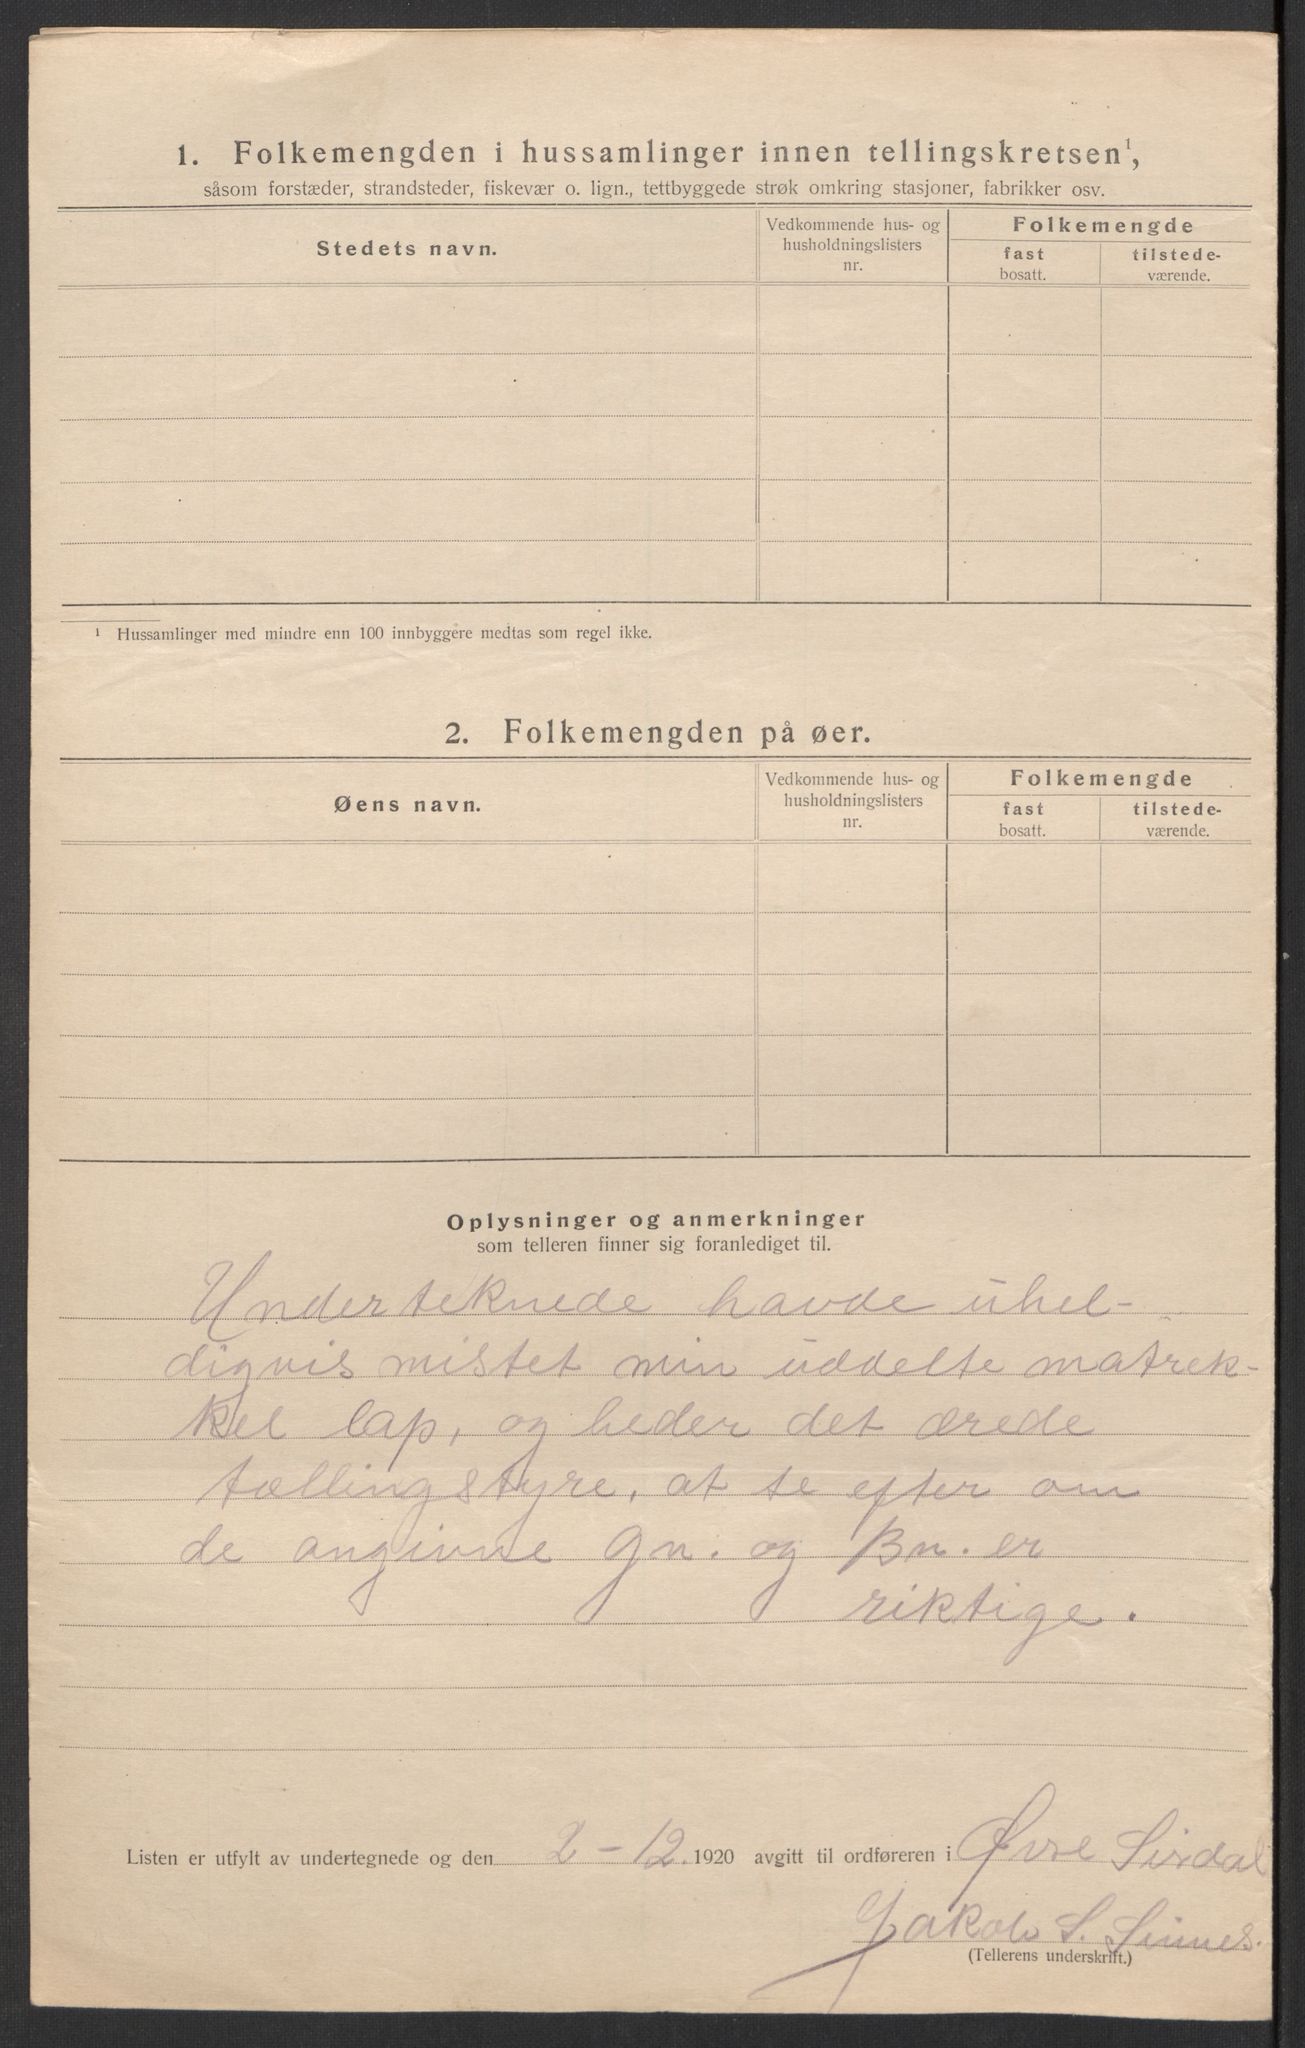 1. Folkemengden i hussamlinger innen tellingskretsen¹,
såsom forstæder, strandsteder, fiskevær o. lign., tettbyggede strøk omkring stasjoner, fabrikker osv.
Stedets navn.
Vedkommende hus- og
husholdningslisters
nr.
Folkemengde
fast
bosatt.
tilstede-
værende.
¹ Hussamlinger med mindre enn 100 innbyggere medtas som regel ikke.
2. Folkemengden på øer.
Øens navn.
Vedkommende hus- og
husholdningslisters
nr.
Folkemengde
fast
bosatt.
tilstede-
værende.
Oplysninger og anmerkninger
som telleren finner sig foranlediget til.
Underteknede havde uhel-
digvis mistet min uddelte matrek-
kel lap, og beder det ærede
tællingstyre, at se efter om
de angivne Gn. og Bn. er
riktige.
Listen er utfylt av undertegnede og den 2-12. 1920 avgitt til ordføreren i Øvre Sirdal
Jakob S. Sinnes.
(Tellerens underskrift.)